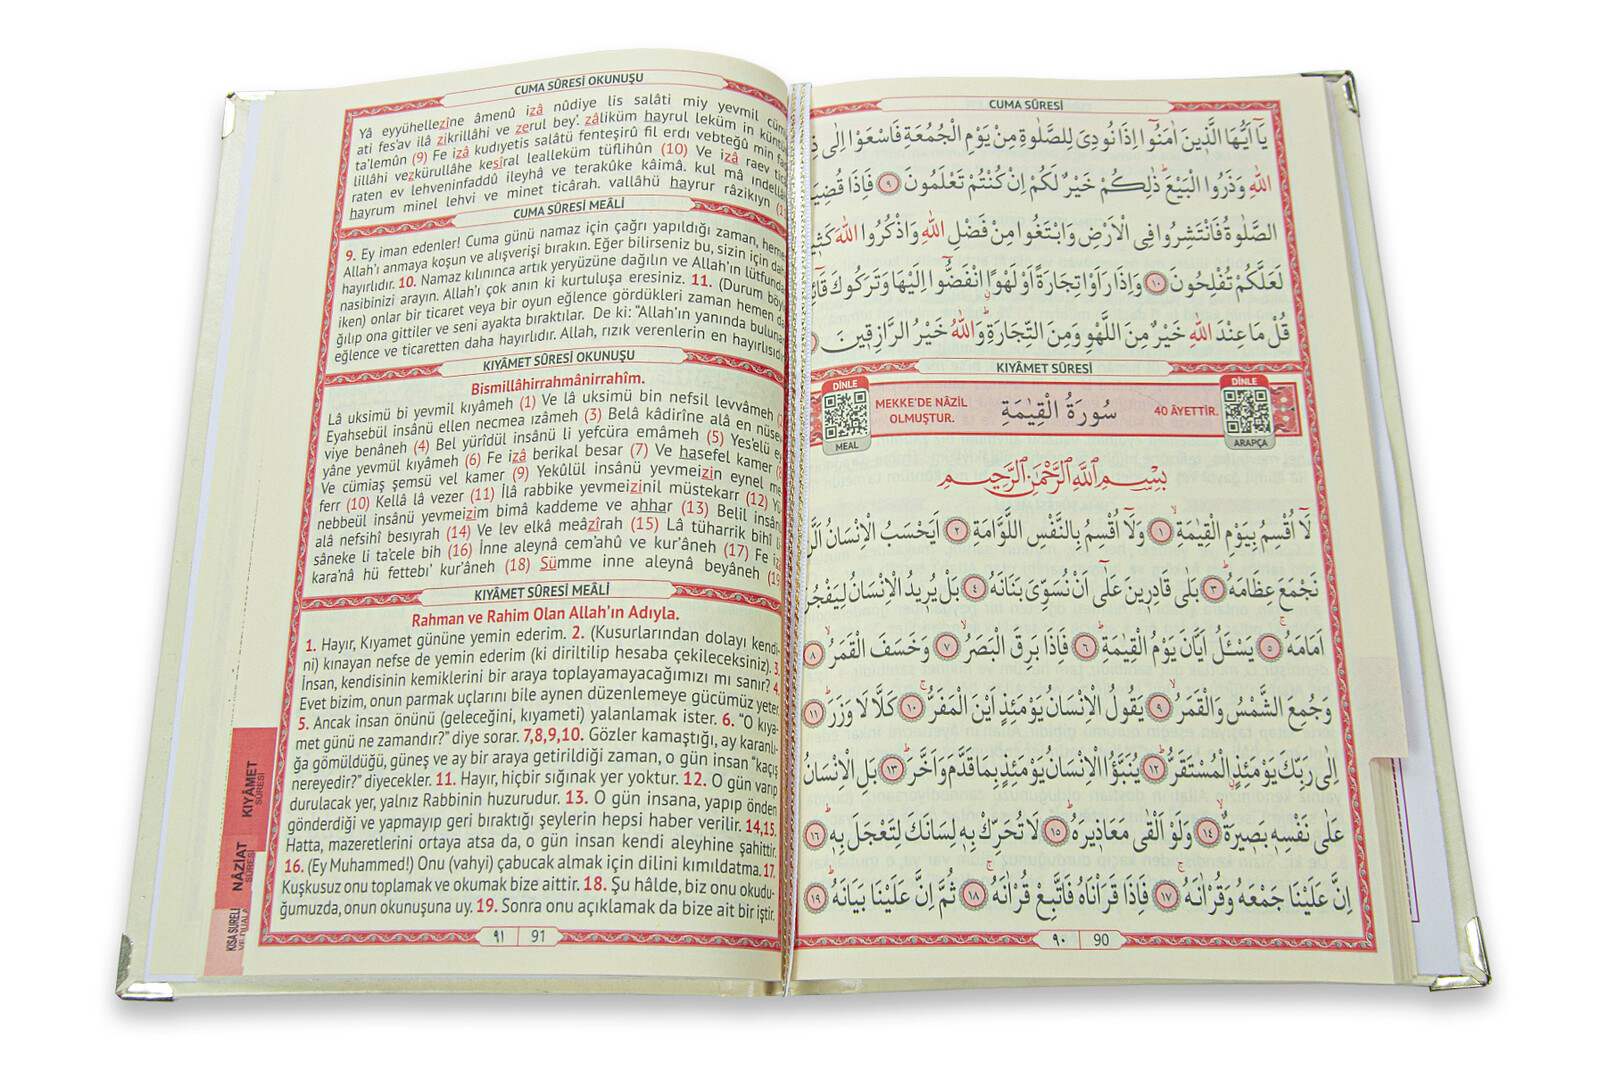 CUMA SÛRESİ OKUNUŞU
Yâ eyyühellezîne âmenû izâ nûdiye lis salâti miy yevmil cümu
ati fes'av ilâ zikrillâhi ve zerul bey'. zâliküm hayrul leküm in küntüm
ta'lemûn (9) Fe izâ kudıyetis salâtü fenteşirû fil erdı vebteğû min fad
lillâhi vezkürullâhe kesîral lealleküm tüflihûn (10) Ve izâ raev tica
raten ev lehveninfaddû ileyhâ ve terakûke kâimâ. kul mâ ındellâ
hayrum minel lehvi ve minet ticârah. vallâhü hayrur râzikıyn
CUMA SÛRESİ MEÂLİ
9. Ey iman edenler! Cuma günü namaz için çağrı yapıldığı zaman, hemen
Allah'ı anmaya koşun ve alışverişi bırakın. Eğer bilirseniz bu, sizin için daha
hayırlıdır. 10. Namaz kılınınca artık yeryüzüne dağılın ve Allah'ın lütfundan
nasibinizi arayın. Allah'ı çok anın ki kurtuluşa eresiniz. 11. (Durum böyle
iken) onlar bir ticaret veya bir oyun eğlence gördükleri zaman hemen da
ğılıp ona gittiler ve seni ayakta bıraktılar. De ki: “Allah'ın yanında bulunan
eğlence ve ticaretten daha hayırlıdır. Allah, rızık verenlerin en hayırlısıdır
KIYÂMET SÛRESİ OKUNUŞU
Bismillâhirrahmânirrahîm.
Lâ uksimü bi yevmil kıyâmeh (1) Ve lâ uksimü bin nefsil levvâmeh (2
Eyahsebül insânü ellen necmea ızâmeh (3) Belâ kâdirîne alâ en nüsev
viye benâneh (4) Bel yürîdül insânü li yefcüra emâmeh (5) Yes'elü ey
yâne yevmül kıyâmeh (6) Fe izâ berikal besar (7) Ve hasefel kamer (8
Ve cümiaş şemsü vel kamer (9) Yekûlül insânü yevmeizin eynel me
ferr (10) Kellâ lâ vezer (11) İlâ rabbike yevmeizinil müstekarr (12) Yü
nebbeül insânü yevmeizim bimâ kaddeme ve ahhar (13) Belil insân
alâ nefsihî besıyrah (14) Ve lev elkâ meâzîrah (15) Lâ tüharrik bihî li
sâneke li ta'cele bih (16) İnne aleynâ cem'ahû ve kur'âneh (17) Fe iza
kara'nâ hü fettebı' kur'âneh (18) Sümme inne aleynâ beyâneh (19
KIYÂMET SÛRESİ MEÂLİ
Rahman ve Rahim Olan Allah'ın Adıyla.
1. Hayır, Kıyamet gününe yemin ederim. 2. (Kusurlarından dolayı kendi-
ni) kınayan nefse de yemin ederim (ki diriltilip hesaba çekileceksiniz). 3.
İnsan, kendisinin kemiklerini bir araya toplayamayacağımızı mı sanır? 4.
Evet bizim, onun parmak uçlarını bile aynen düzenlemeye gücümüz yeter.
5. Ancak insan önünü (geleceğini, kıyameti) yalanlamak ister. 6. “O kıya-
met günü ne zamandır?” diye sorar. 7,8,9,10. Gözler kamaştığı, ay karanlı-
ğa gömüldüğü, güneş ve ay bir araya getirildiği zaman, o gün insan “kaçış
nereyedir?” diyecekler. 11. Hayır, hiçbir sığınak yer yoktur. 12. O gün varıp
durulacak yer, yalnız Rabbinin huzurudur. 13. O gün insana, yapıp önden
gönderdiği ve yapmayıp geri bıraktığı şeylerin hepsi haber verilir. 14,15.
Hatta, mazeretlerini ortaya atsa da, o gün insan kendi aleyhine şahittir.
16. (Ey Muhammed!) Onu (vahyi) çabucak almak için dilini kımıldatma. 17.
Kuşkusuz onu toplamak ve okumak bize aittir. 18. Şu hâlde, biz onu okudu-
ğumuzda, onun okunuşuna uy. 19. Sonra onu açıklamak da bize ait bir iştir.
٩١ 91
KIYÂMET
SÛRESİ
NÂZİAT
SÛRESİ
KISA SURELER
VE DUALAR
CUMA SÛRESİ
يَٓا اَيُّهَا الَّذ۪ينَ اٰمَنُٓوا اِذَا نُودِيَ لِلصَّلٰوةِ مِنْ يَوْمِ الْجُمُعَةِ فَاسْعَوْا اِلٰى
اللّٰهِ وَذَرُوا الْبَيْعَۜ ذٰلِكُمْ خَيْرٌ لَكُمْ اِنْ كُنْتُمْ تَعْلَمُونَ ﴿٩﴾ فَاِذَا قُضِيَتِ
الصَّلٰوةُ فَانْتَشِرُوا فِي الْاَرْضِ وَابْتَغُوا مِنْ فَضْلِ اللّٰهِ وَاذْكُرُوا اللّٰهَ كَث۪يرًا
لَعَلَّكُمْ تُفْلِحُونَ ﴿١٠﴾ وَاِذَا رَاَوْا تِجَارَةً اَوْ لَهْوًاۨ انْفَضُّٓوا اِلَيْهَا وَتَرَكُوكَ قَٓائِمًاۜ
قُلْ مَا عِنْدَ اللّٰهِ خَيْرٌ مِنَ اللَّهْوِ وَمِنَ التِّجَارَةِۜ وَاللّٰهُ خَيْرُ الرَّازِق۪ينَ
KIYÂMET SÛRESİ
DİNLE
MEAL
MEKKE'DE NÂZİL
OLMUŞTUR.
سُورَةُ الْقِيٰمَةِ
40 ÂYETTİR.
DİNLE
ARAPÇA
بِسْمِ اللّٰهِ الرَّحْمٰنِ الرَّح۪يمِ
لَٓا اُقْسِمُ بِيَوْمِ الْقِيٰمَةِۙ ﴿١﴾ وَلَٓا اُقْسِمُ بِالنَّفْسِ اللَّوَّامَةِ ﴿٢﴾ اَيَحْسَبُ الْاِنْسَانُ اَلَّنْ
نَجْمَعَ عِظَامَهُۜ ﴿٣﴾ بَلٰى قَادِر۪ينَ عَلٰٓى اَنْ نُسَوِّيَ بَنَانَهُ ﴿٤﴾ بَلْ يُر۪يدُ الْاِنْسَانُ لِيَفْجُرَ
اَمَامَهُۚ ﴿٥﴾ يَسْـَٔلُ اَيَّانَ يَوْمُ الْقِيٰمَةِۜ ﴿٦﴾ فَاِذَا بَرِقَ الْبَصَرُۙ ﴿٧﴾ وَخَسَفَ الْقَمَرُۙ ﴿٨﴾
وَجُمِعَ الشَّمْسُ وَالْقَمَرُۙ ﴿٩﴾ يَقُولُ الْاِنْسَانُ يَوْمَئِذٍ اَيْنَ الْمَفَرُّۚ ﴿١٠﴾ كَلَّا لَا وَزَرَۜ ﴿١١﴾
اِلٰى رَبِّكَ يَوْمَئِذٍۨ الْمُسْتَقَرُّۜ ﴿١٢﴾ يُنَبَّؤُا الْاِنْسَانُ يَوْمَئِذٍ بِمَا قَدَّمَ وَاَخَّرَۜ ﴿١٣﴾ بَلِ الْاِنْسَانُ
عَلٰى نَفْسِه۪ بَص۪يرَةٌۙ ﴿١٤﴾ وَلَوْ اَلْقٰى مَعَاذ۪يرَهُۜ ﴿١٥﴾ لَا تُحَرِّكْ بِه۪ لِسَانَكَ لِتَعْجَلَ بِه۪ۜ ﴿١٦﴾
اِنَّ عَلَيْنَا جَمْعَهُ وَقُرْاٰنَهُۚ ﴿١٧﴾ فَاِذَا قَرَاْنَاهُ فَاتَّبِعْ قُرْاٰنَهُۚ ﴿١٨﴾ ثُمَّ اِنَّ عَلَيْنَا بَيَانَهُۜ ﴿١٩﴾
٩٠ 90